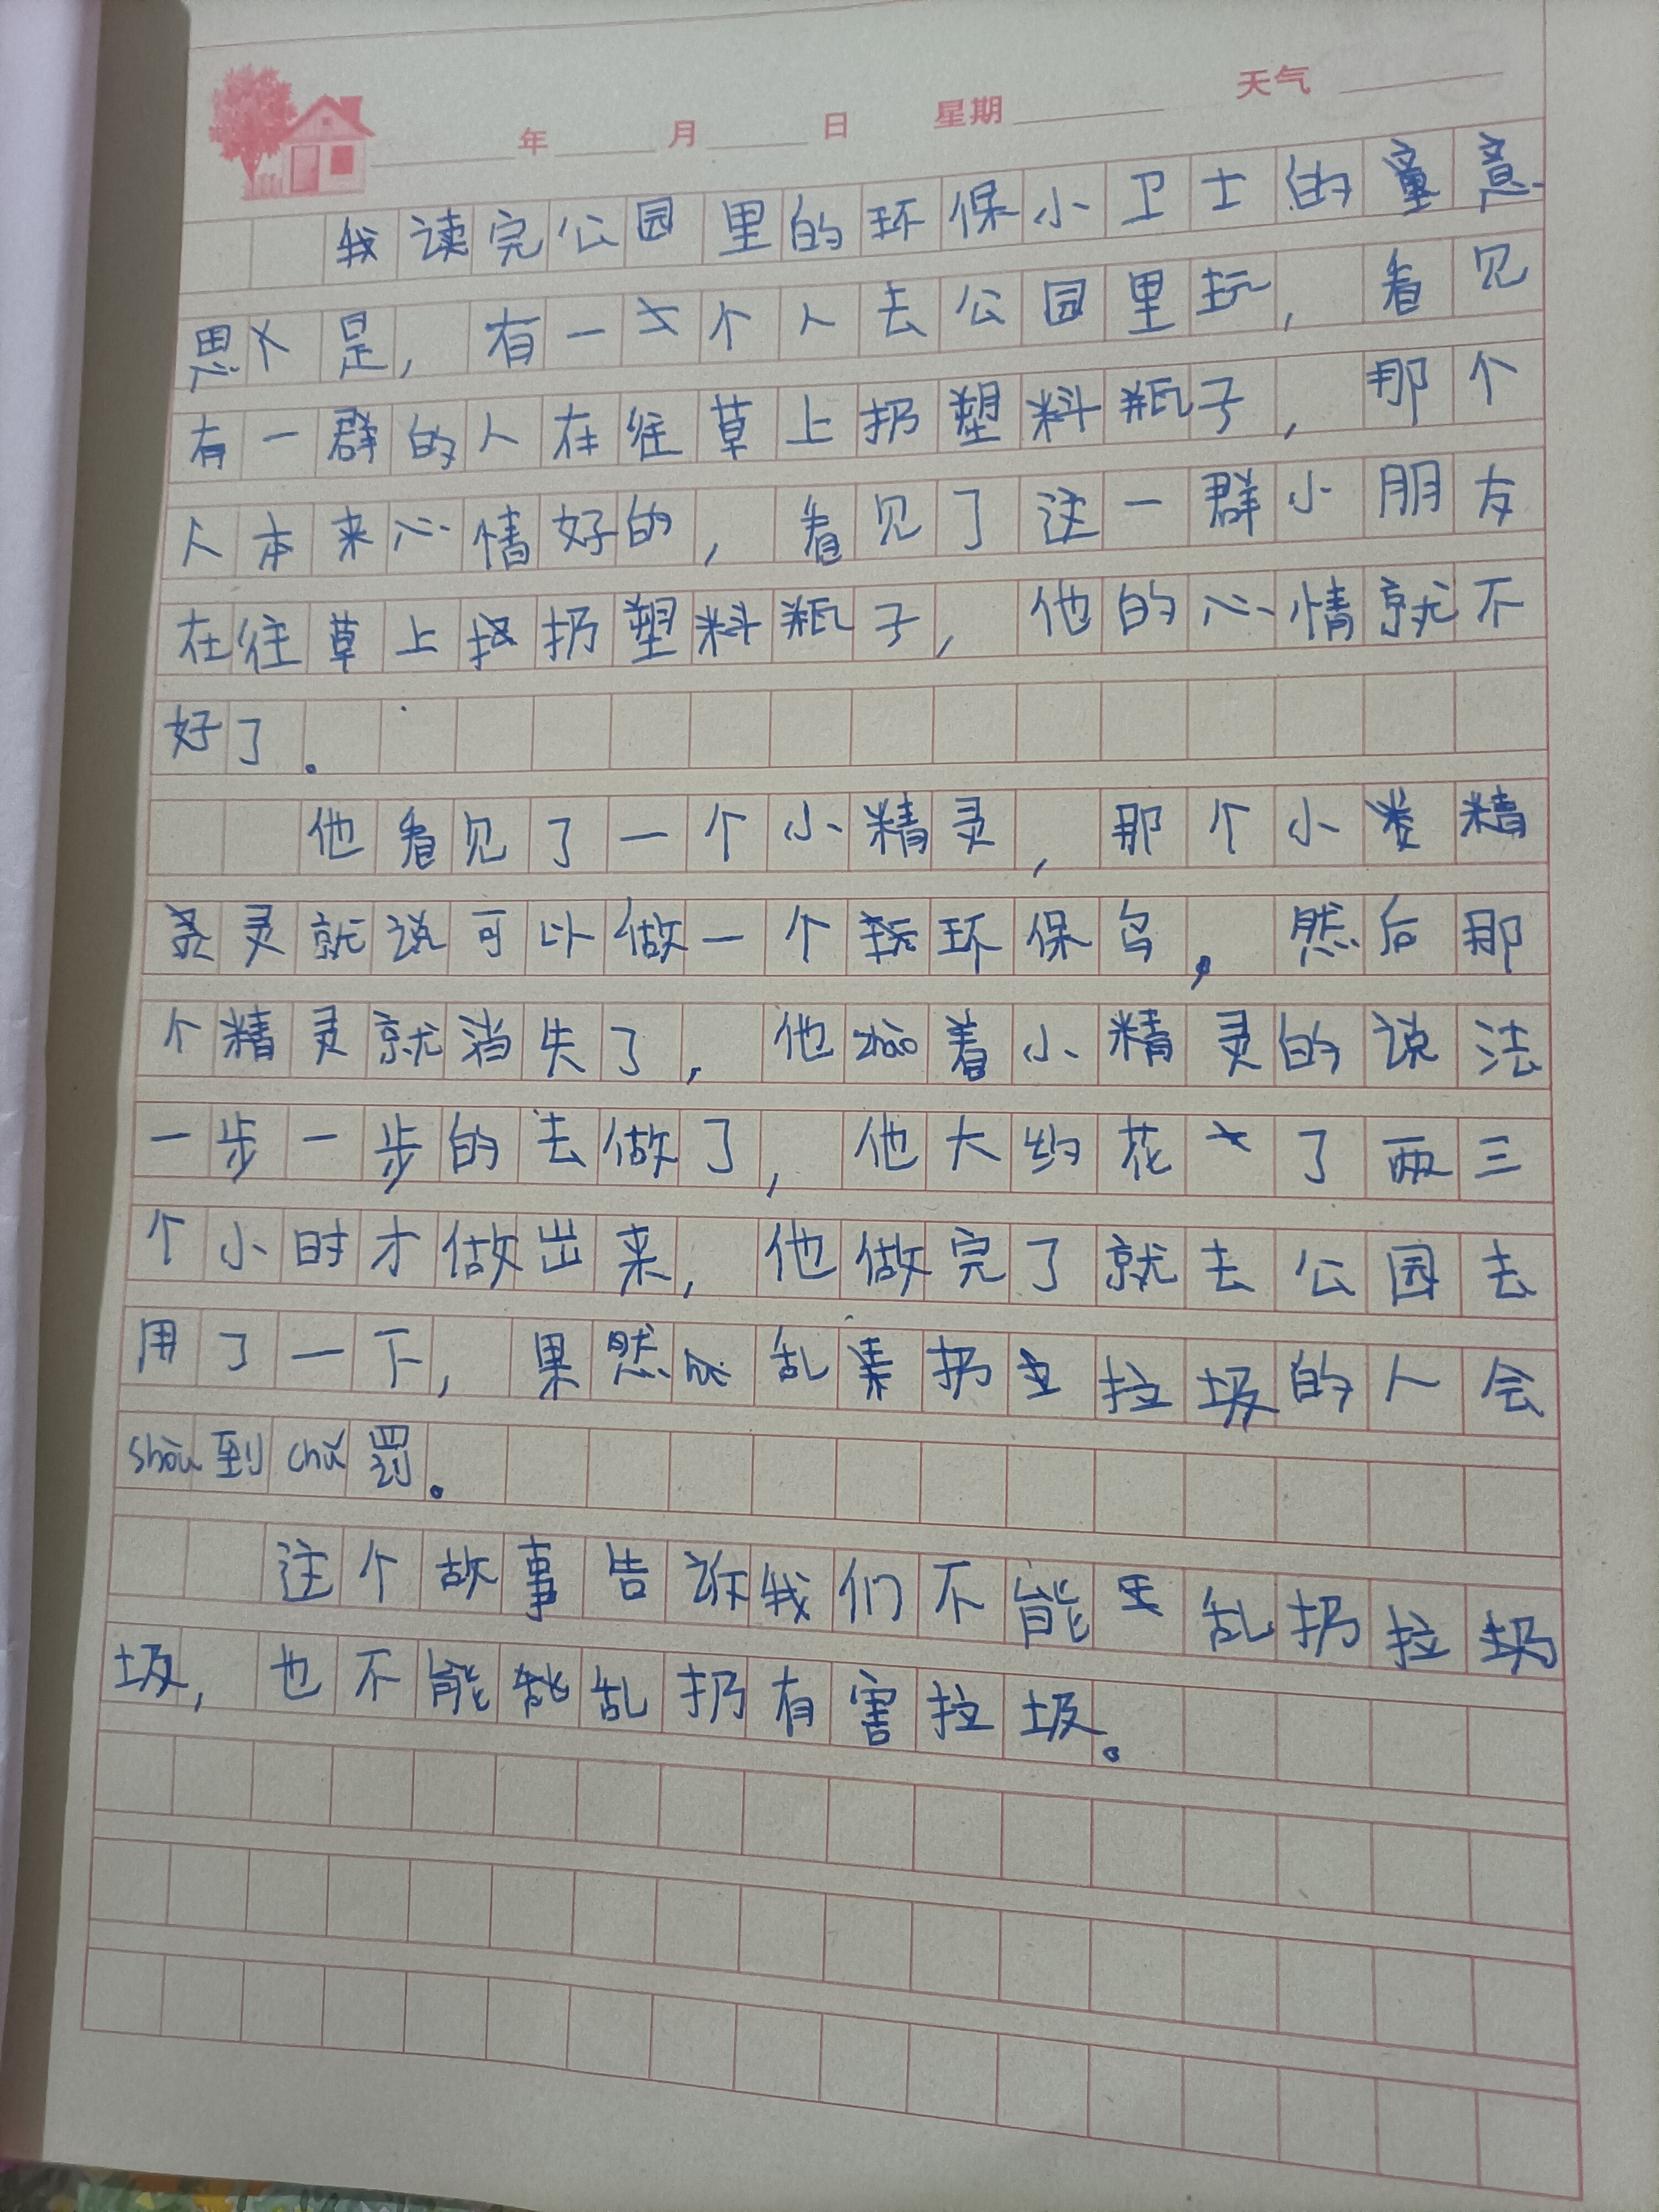 年 月 日 星期 天气
我读完公园里的环保小卫士的意
思是，有一个人去公园里玩，看见
有一群的人在往草上扔塑料瓶子，那个
人本来心情好的，看见了这一群小朋友
在往草上扔塑料瓶子，他的心情就不
好了。
他看见了一个小精灵，那个小精
灵就说可以做一个环保鸟，然后那
个精灵就消失了，他zhao着小精灵的说法
一步一步的去做了，他大约花了两三
个小时才做出来，他做完了就去公园去
用了一下，果然乱扔垃圾的人会
shòu到chǔ罚。
这个故事告诉我们不能乱扔垃
圾，也不能乱扔有害垃圾。